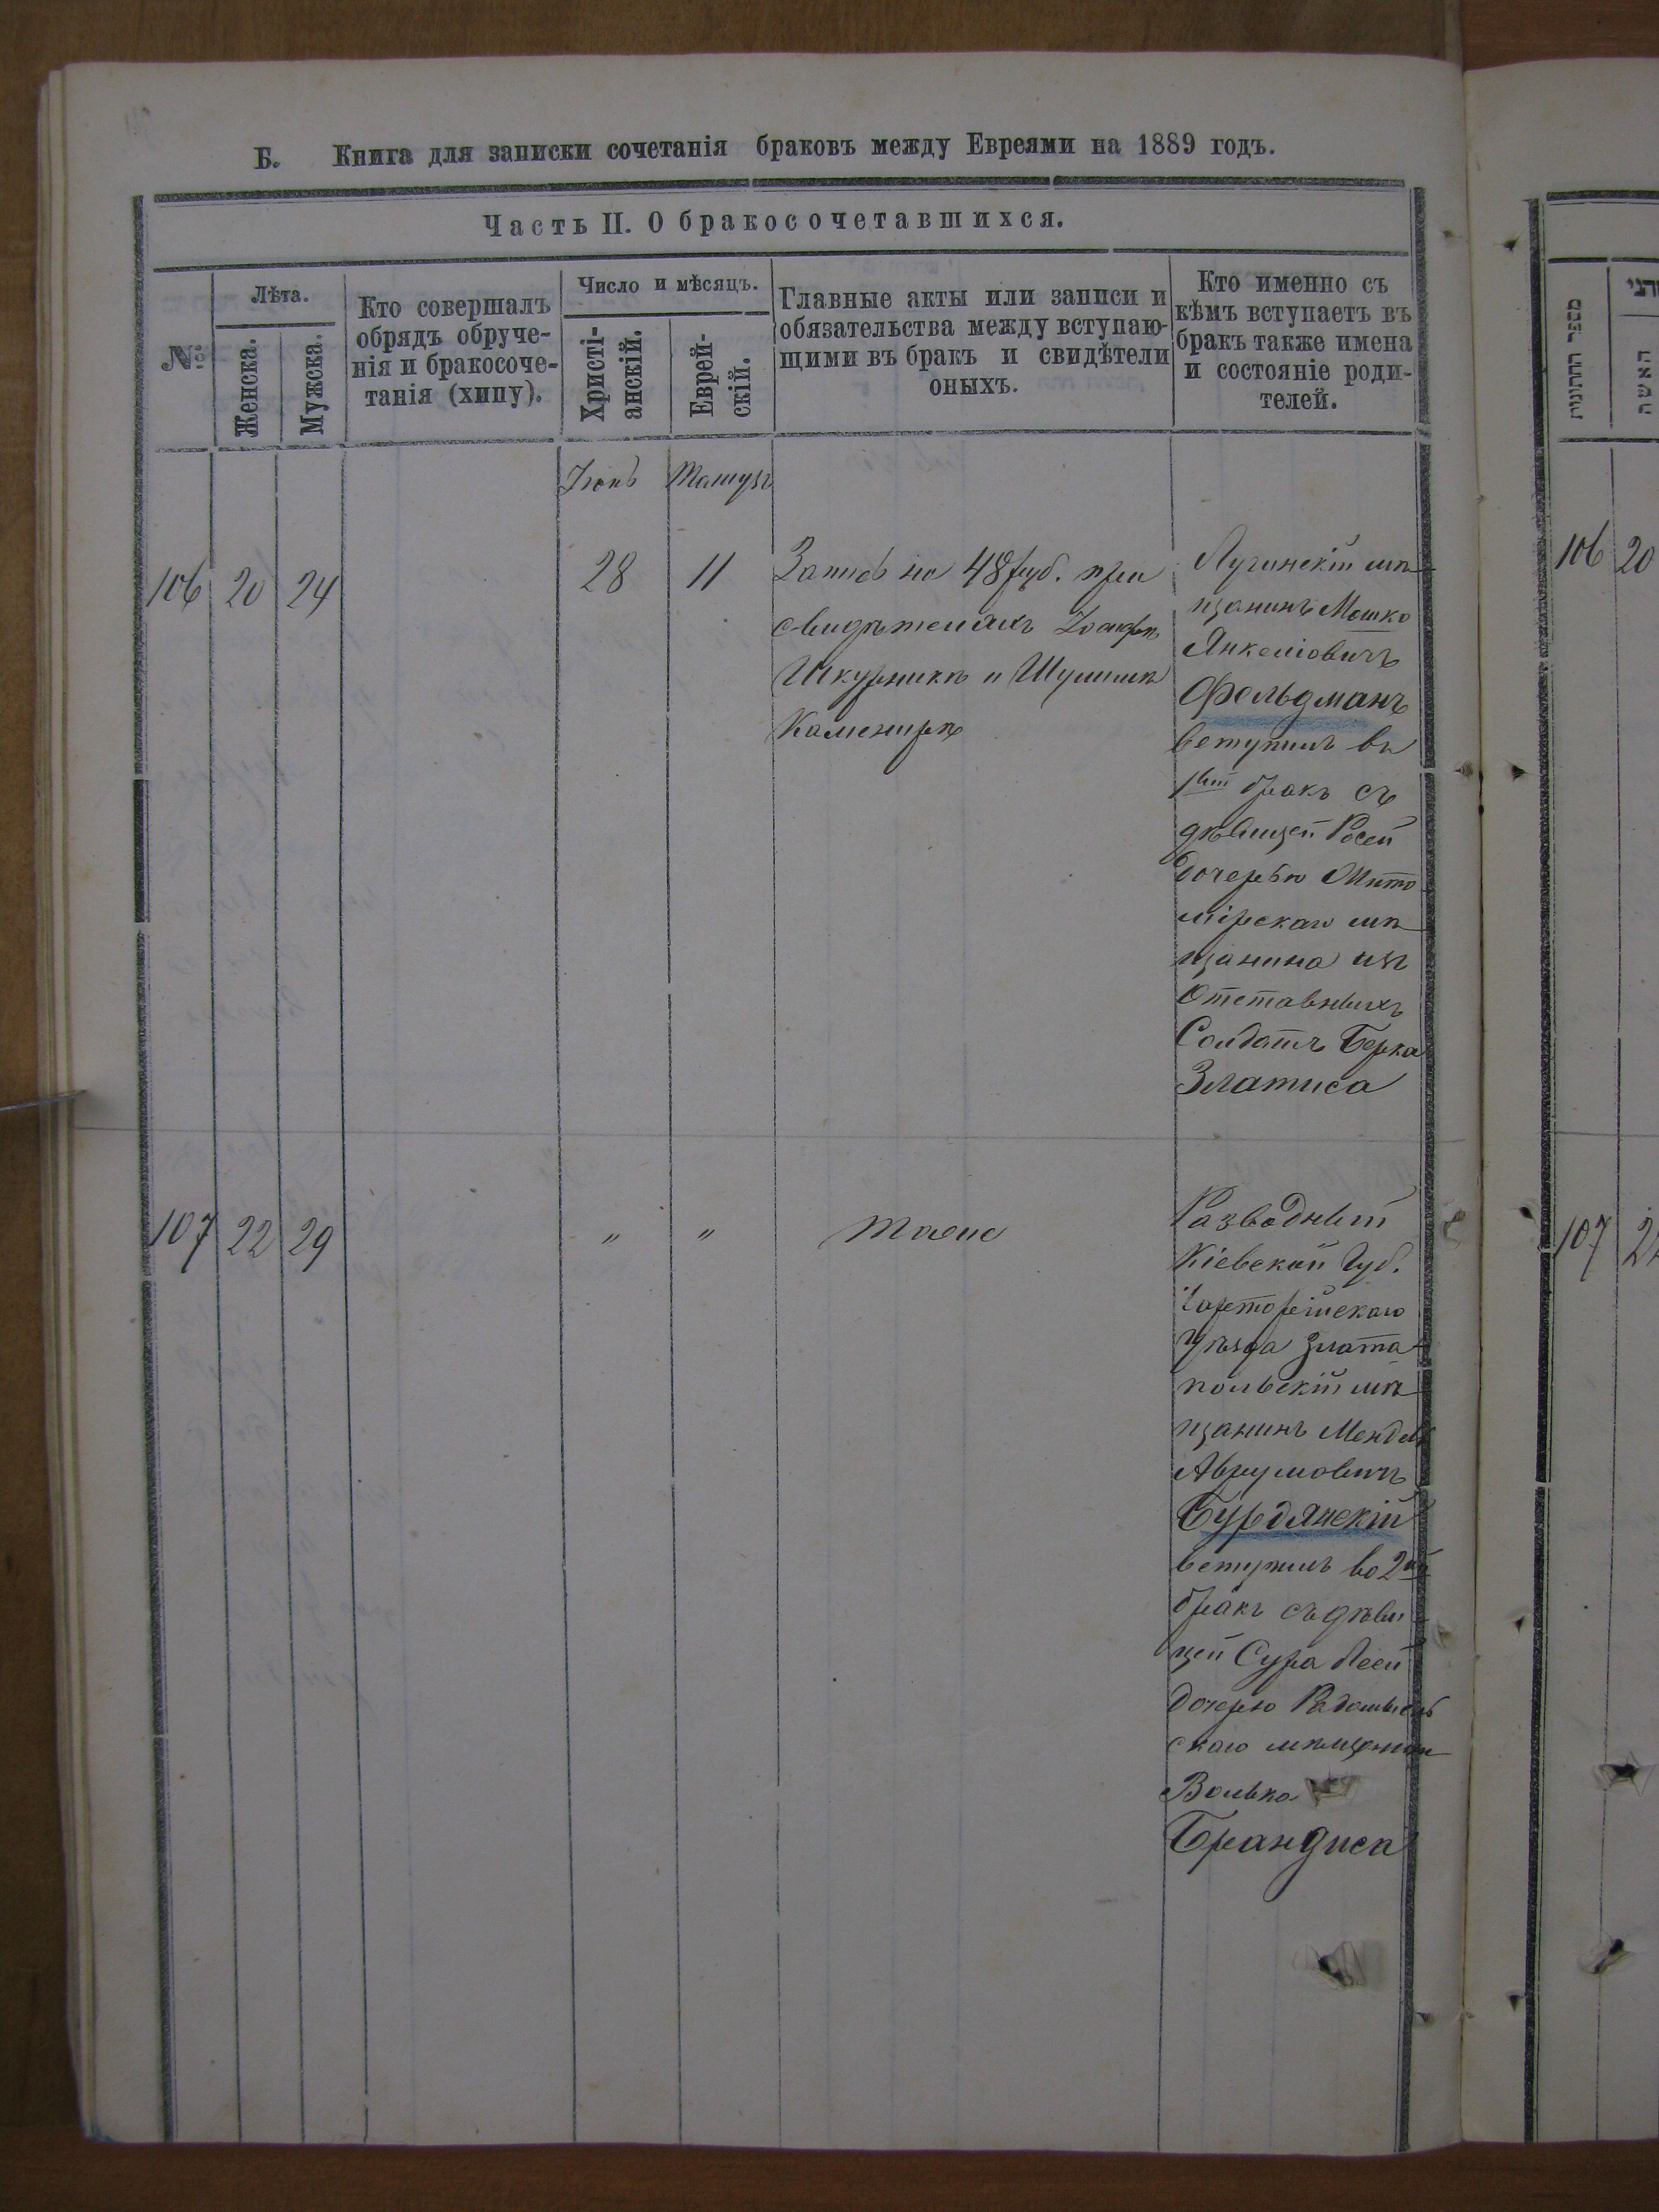 Б. Книга для записки сочетанія браковъ между Евреями на 1889 годъ.
Часть II. О бракосочетавшихся.
№
Лѣта.
Женска.
Мужска.
Кто совершалъ
обрядъ обруче-
нія и бракосоче-
танія (хипу).
Число и мѣсяцъ.
Христі-
анскій.
Еврей-
скій.
Главные акты или записи и
обязательства между вступаю-
щими въ бракъ и свидѣтели
оныхъ.
Кто именно съ
кѣмъ вступаетъ въ
бракъ также имена
и состояніе роди-
телей.
Тамузъ
106 20 24 28 11
Запись на 48 руб. при
свидѣтеляхъ
Шкурникъ и
Камениръ
Лугинскій мѣ-
щанинъ Мошко
Янкеліовичъ
Фельдманъ
вступилъ въ
1вый бракъ съ
дѣвицей Росей
дочерью Жито
мірскаго мѣ-
щанина изъ
Отставныхъ
Солдатъ Берка
Златиса
107 22 29 " "
тоже
Разводный
Кіевской Губ.
Уѣзда Злата-
польскій мѣ-
щанинъ Мендель
Аврумовичъ
Бурдянскій
вступилъ во 2ой
бракъ съ дѣви-
цей Сура Леей
дочерю Радомысль
скаго мѣщанина
Волька
Брандиса
מספר החתונות
האשה
106 20
107